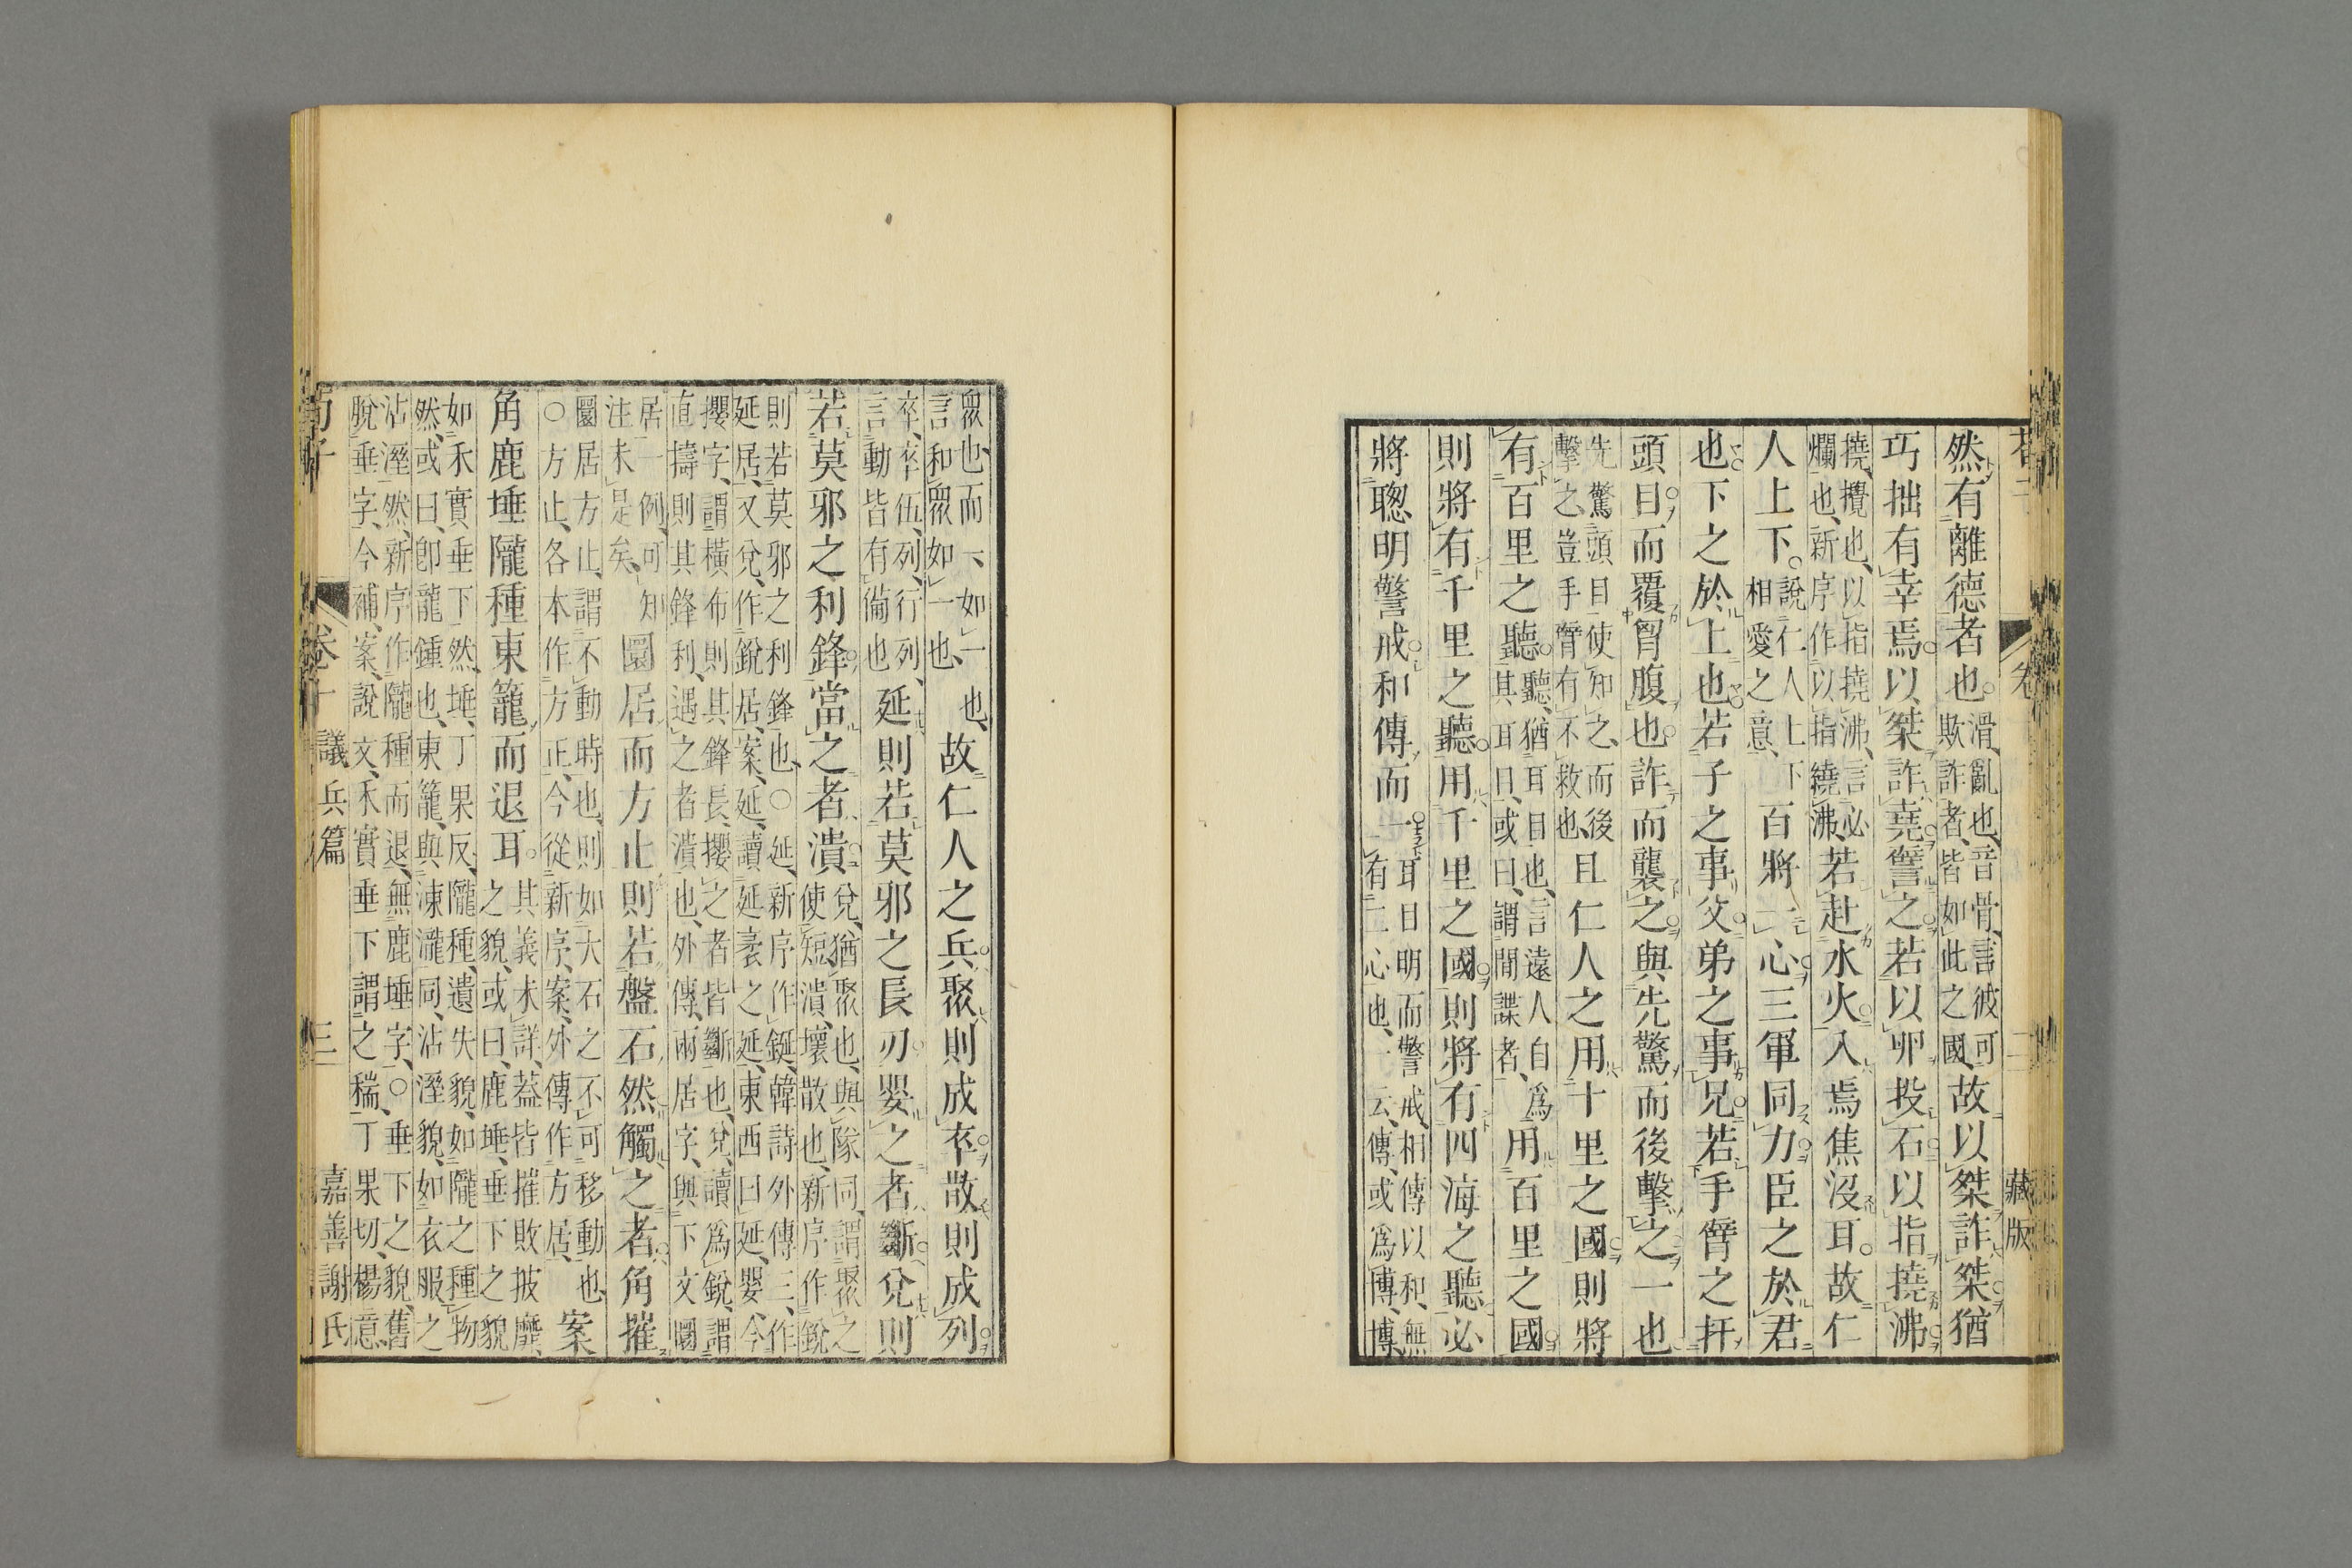 然有離德者也滑、亂也、音骨、言彼可欺詐者、皆如此之國、故以桀詐桀猶
巧拙有幸焉以桀詐堯譬之若以卵投石以指撓沸
撓、攪也、以指撓沸、言必爛也、新序作以指繞沸、若赴水火入焉焦沒耳故仁
人上下說仁人上下相愛之意、百將一心三軍同力臣之於君
也下之於上也若子之事父弟之事兄若手臂之扞
頭目而覆胷腹也詐而襲之與先驚而後擊之一也
先驚頭目使知之、而後擊之、豈手臂有不救也、且仁人之用十里之國則將
有百里之聽聽、猶耳目也、言遠人自爲其耳目、或曰、謂閒諜者、用百里之國
則將有千里之聽用千里之國則將有四海之聽必
將聰明警戒和傳而一耳目明而警戒、相傳以和、無有二心也、一云、傳、或爲博、博、
衆也、而一、如一也、言和衆如一也、故仁人之兵聚則成卒散則成列
卒、卒伍、列、行列、言動皆有備也延則若莫邪之長刃嬰之者斷兌則
若莫邪之利鋒當之者潰兌、猶聚也、與隊同、謂聚之使短、潰、壞散也、新序作銳
則若莫邪之利鋒也、○延、新序作鋌、韓詩外傳三、作延居、又兌、作銳居、案、延、讀延袤之延、東西曰延、嬰、今
攖字、謂橫布則其鋒長、攖之者皆斷也、兌、讀爲銳、謂直擣則其鋒利、遇之者潰也、外傳、兩居字、與下文圜
居一例、可知注未足矣、圜居而方止則若盤石然觸之者角摧
圜居方止、謂不動時也、則如大石之不可移動也○方止、各本作方正、今從新序、案、外傳作方居、案
角鹿埵隴種東籠而退耳其義未詳、蓋皆摧敗披靡之貌、或曰、鹿埵、垂下之貌
如禾實垂下然、埵、丁果反、隴種、遺失貌、如隴之種物然、或曰、卽龍鍾也、東籠、與凍瀧同、沾溼貌、如衣服之
沾溼然、新序作隴種而退、無鹿埵字、○垂下之貌、舊脫垂字、今補、案、說文、禾實垂下謂之𥠄、丁果切、楊意、
荀子 卷十 議兵篇 三 嘉善謝氏
藏版